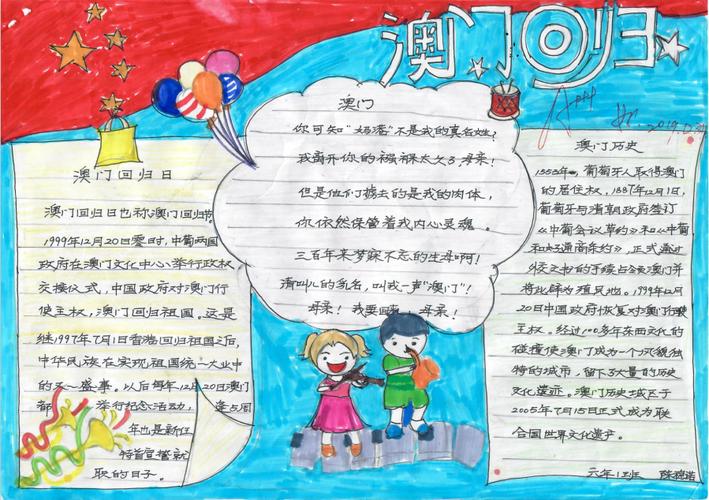 澳门回归
2019.12.
澳门回归日
澳门回归日也称澳门回归节。
1999年12月20日零时,中葡两国
政府在澳门文化中心举行政权
交接仪式,中国政府对澳门行
使主权,澳门回归祖国。这是
继1997年7月1日香港回归祖国之后,
中华民族在实现祖国统一大业中
的又一盛事。以后每年12月20日澳门
都 举行纪念活动, 逢与同
年也是新任
特首宣誓就
职的日子。
澳门
你可知"妈港"不是我的真名姓?
我离开你的襁褓太久了,母亲!
但是他们掳去的是我的肉体,
你依然保管着我内心灵魂。
三百年来梦寐不忘的生母啊!
请叫儿的乳名,叫我一声"澳门"!
母亲!我要回来,母亲!
澳门历史
1553年,葡萄牙人取得澳门
的居住权,1887年12月1日,
葡萄牙与清朝政府签订
《中葡会议草约》和《中葡
和好通商条约》,正式通过
外交文书的手续占领澳门并
将此辟为殖民地。1999年12月
20日中国政府恢复对澳门行使
主权。经过100多年东西文化的
碰撞使澳门成为一个风貌独
特的城市,留下了大量的历史
文化遗迹。澳门历史城区于
2005年7月15日正式成为联
合国世界文化遗产。
六年12班